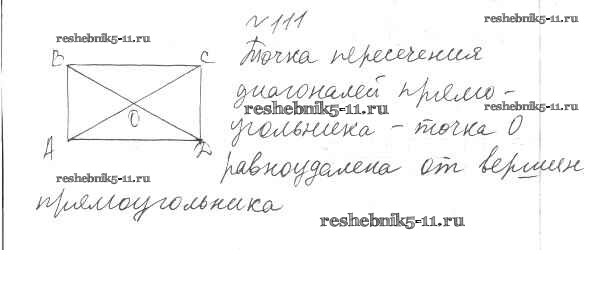 №111
reshebnik5-11.ru
reshebnik5-11.ru
B C
Точка пересечения
диагоналей прямо-
reshebnik5-11.ru
reshebnik5-11.ru
O
угольника - точка О
A D
равноудалена от вершин
reshebnik5-11.ru
прямоугольника
reshebnik5-11.ru